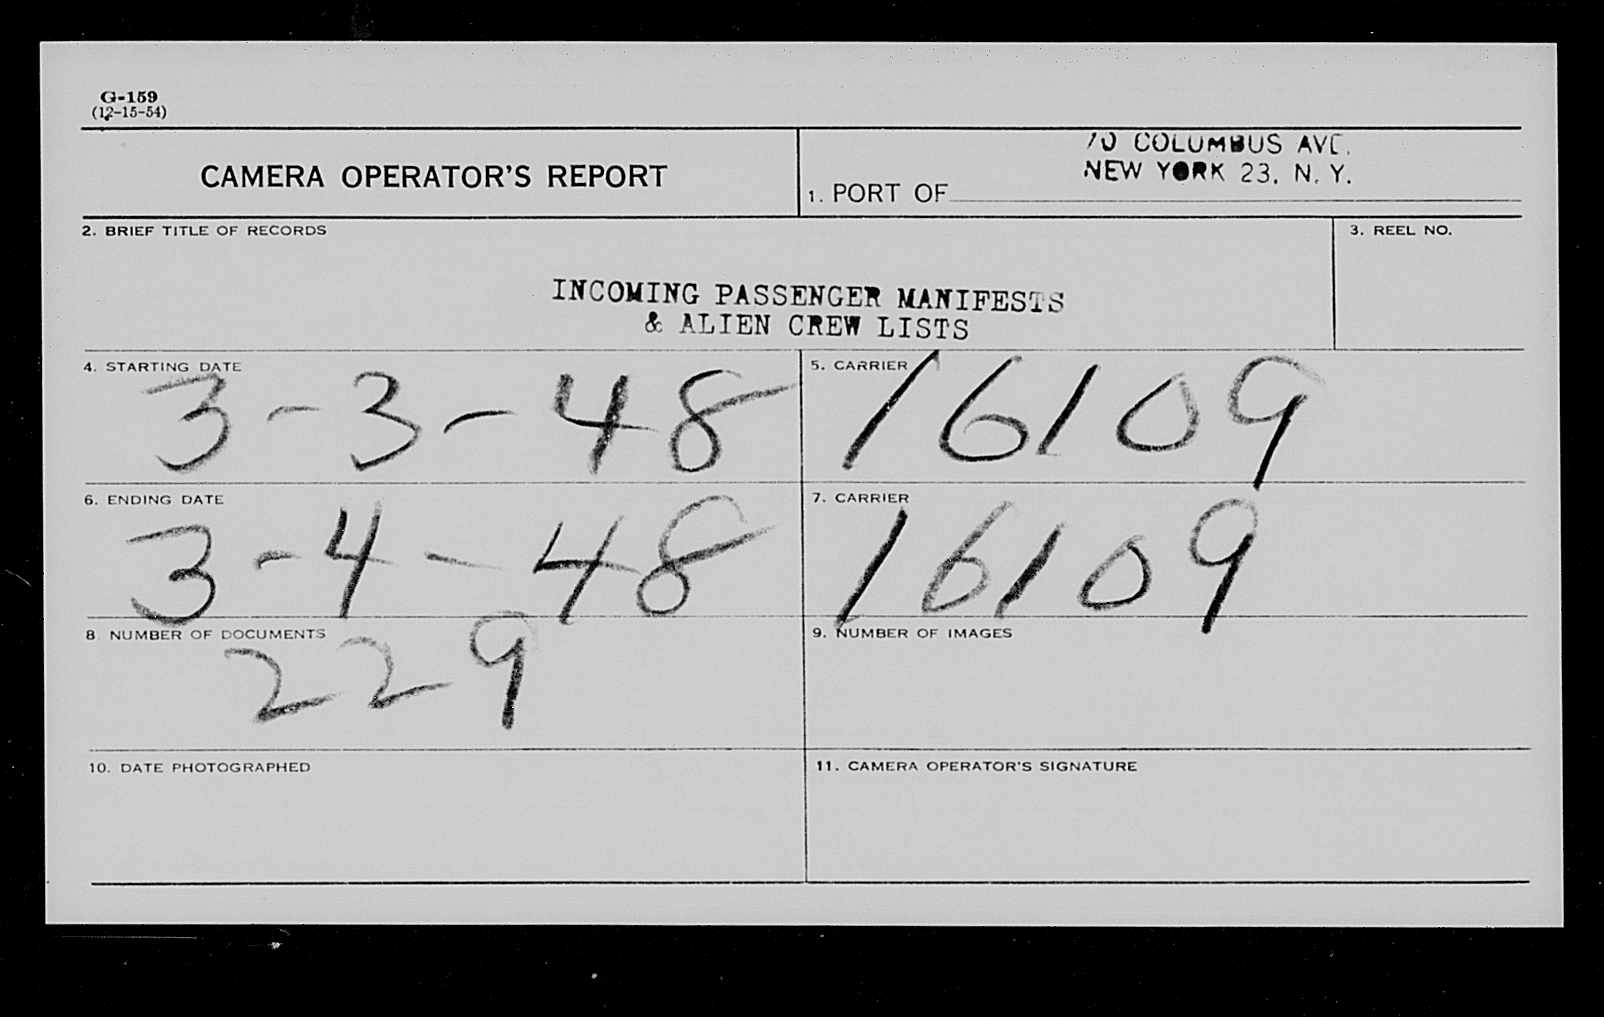 G-159
(12-15-54)
CAMERA OPERATOR'S REPORT
70 COLUMBUS AVE.
NEW YORK 23, N. Y.
1. PORT OF
2. BRIEF TITLE OF RECORDS
3. REEL NO.
INCOMING PASSENGER MANIFESTS
& ALIEN CREW LISTS
4. STARTING DATE
3-3-48
5. CARRIER
16109
6. ENDING DATE
3-4-48
7. CARRIER
16109
8. NUMBER OF DOCUMENTS
229
9. NUMBER OF IMAGES
10. DATE PHOTOGRAPHED
11. CAMERA OPERATOR'S SIGNATURE